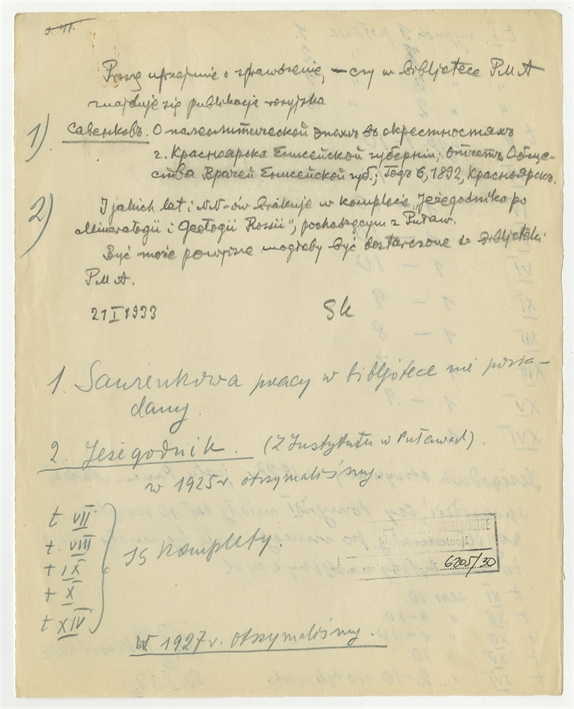 Proszę uprzejmie o sprawdzenie, – czy w bibljotece P.M.A
znajduje się publikacja rosyjska
1) Савенковъ. О палеолитической эпохѣ въ окрестностяхъ
г. Красноярска Енисейской губерніи; отчетъ Обще-
ства Врачей Енисейской губ.; годъ 6, 1892, Красноярскъ.
2) I jakich lat i NN-ów brakuje w komplecie "Jeżegodnika po
Mineralogii i Geologii Rossii", pochodzącym z Puław.
Być może powyższe mogłoby być dostarczone do bibljoteki
P.M.A.
21 I 1933 Sk
1. Sawienkowa pracy w bibljotece nie posia-
damy.
2. Jeżegodnik. (Z Instytutu w Puławach).
w 1925 r. otrzymaliśmy.
t VII
t. VIII
t IX
t X
t XIV
15 komplety.
6205/30
w 1927 r. otrzymaliśmy.